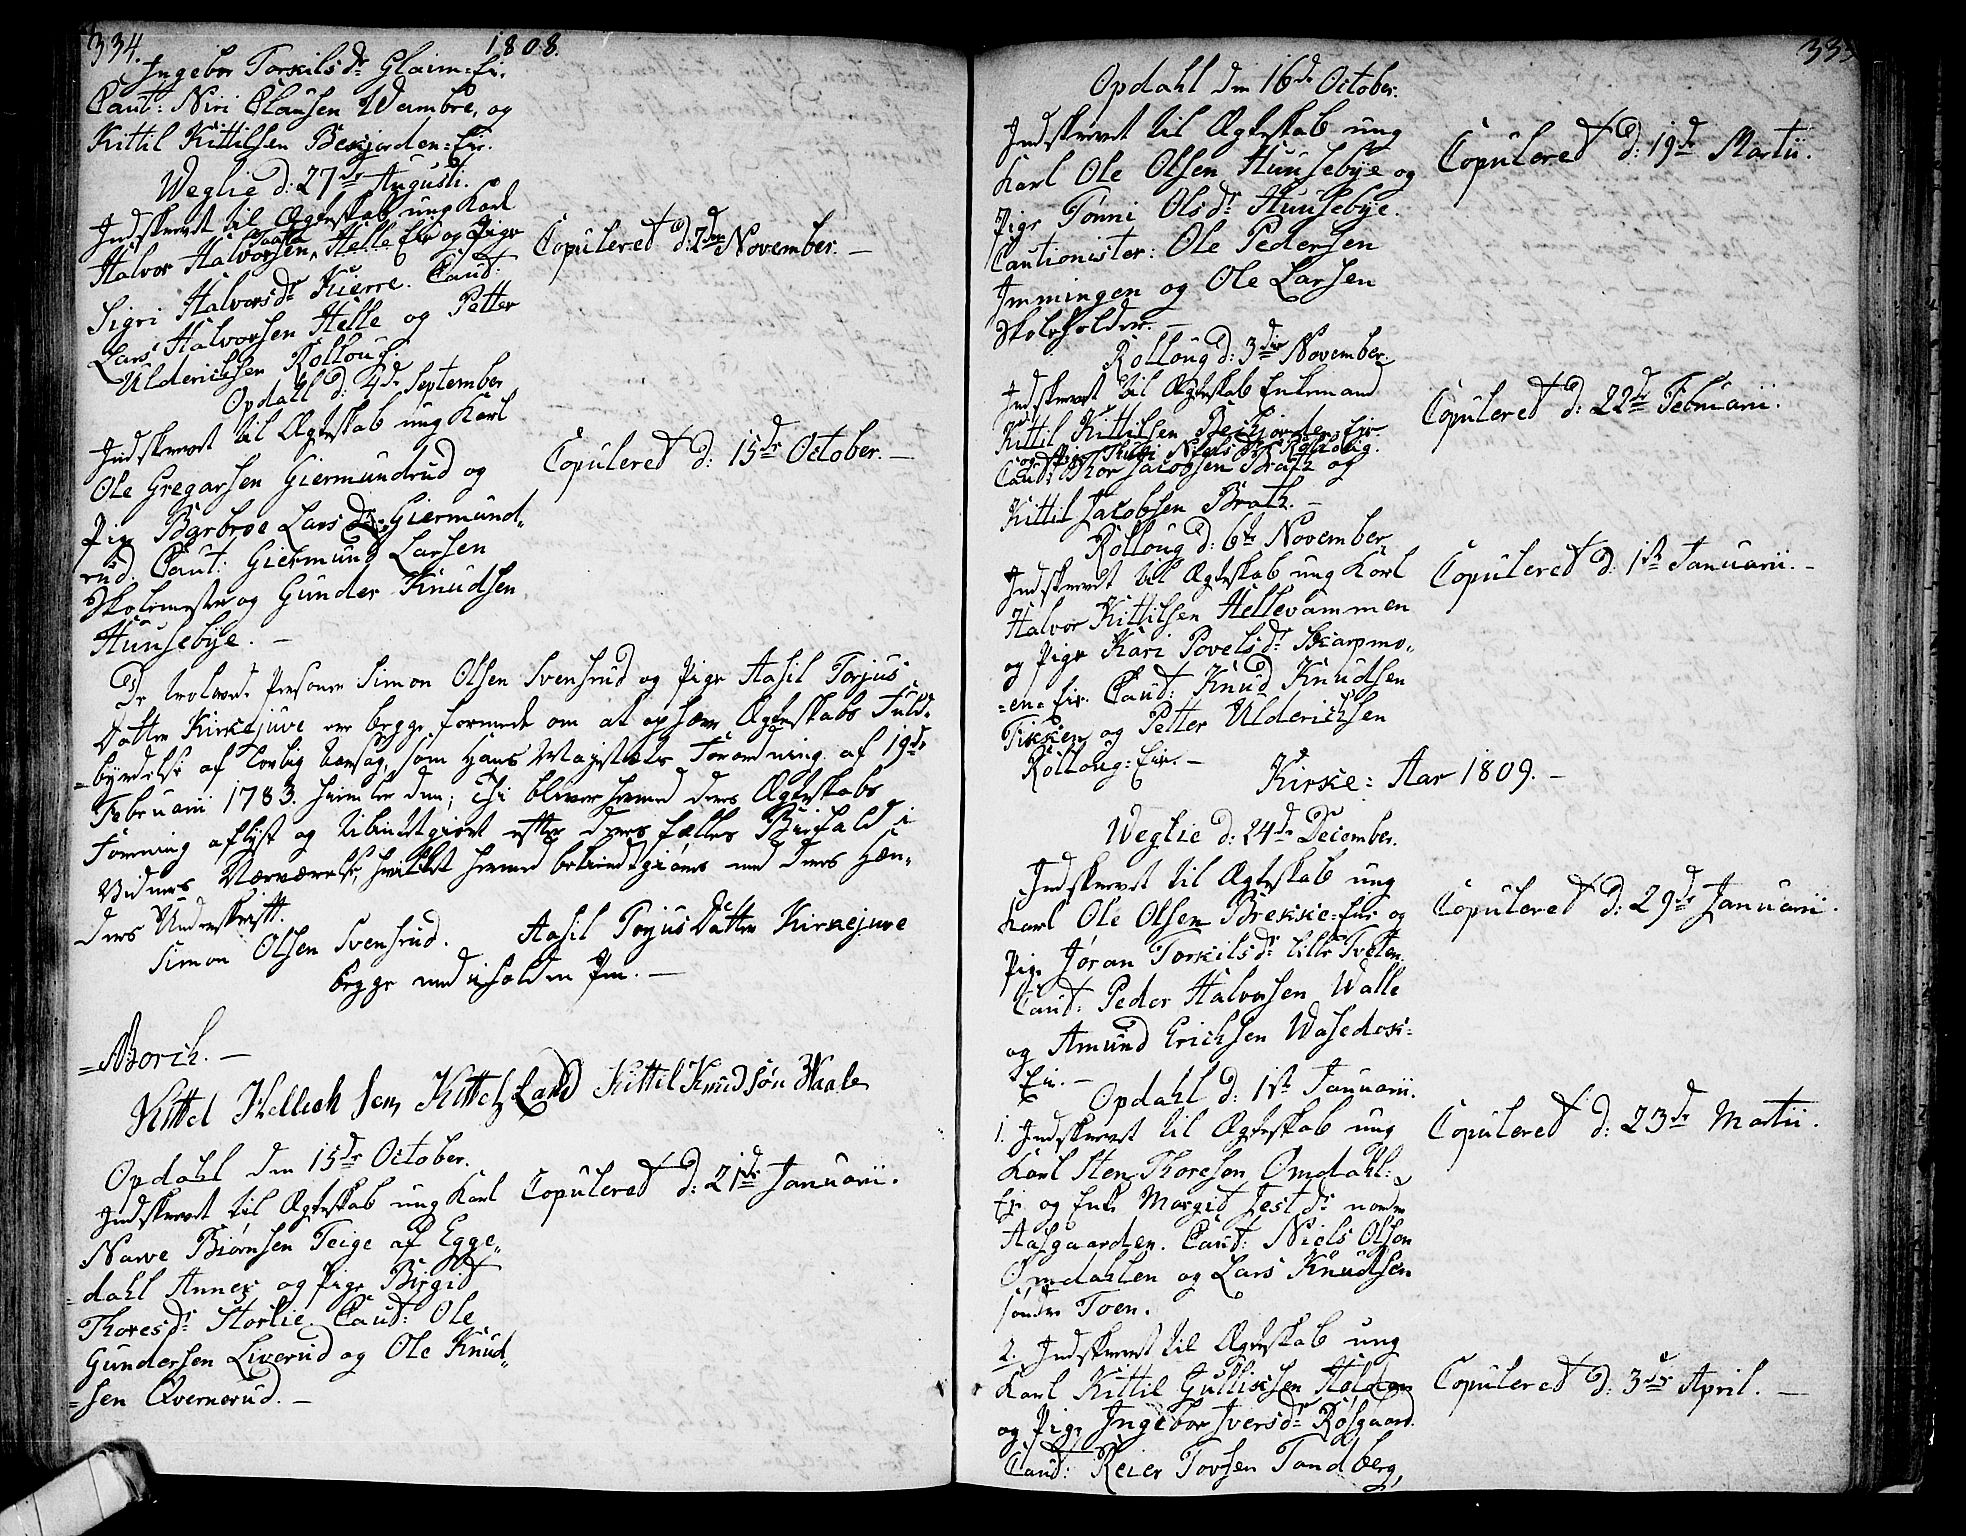 334. 1808.
Ingebor Torkilsdr Glaim=Ei.
Caut: Niri Clausen Wambre, og
Kittil Kittilsen Beskjorden=Eir.
Weglie d: 27de Augusti.
Indskrevet til Ægteskab ung Karl
Halvor Halvorsen, Helle Eie og Pige
Sigri Halvorsdr Kierre. Caut:
Lars Halvorsen Helle og Petter
Ulderichsen Rolloug.
Copuleret d: 2den November. —
Opdahl d: 4de September
Indskrevet til Ægteskab ung Karl
Ole Gregarsen Giermundrud og
Pige Barbroe Larsdr Giermund„
rud. Caut: Giermund Larsen
Skolemester og Gunder Knudsen
Huusebye. —
Copuleret d: 15de October. —
De trolovede Personer Simon Olsen Svensrud og Pige Aasil Torjus
Datter Kirkejuve ere begge formede om at ophæve Ægteskabs Fuld„
=byrdelse af lovlig Aarsag, som Hans Majestæts Forordning af 19de
Februarii 1783. hiemler dem; Thi bliver hermed deres Ægteskabs
Foreening aflyst og tilintetgiort efter deres fælles Biefald i
Vidners Nærværelse, hvilket hermed bekiendtgiøres med deres Hæn„
ders Underskrift.
Simon Olsen Svensrud. Aasil TorjusDatter Kirkejuve
begge med iholden Pen. —
=Borch. —
Kittel Kelleck sen Kittelsland Kittil Knudsøn Waale
Opdahl den 15de October.
Indskrevet til Ægteskab ung Karl
Narve Biørnsen Teige af Egge„
=dahl Annex og Pige Birgit
Thoresdr Storlie. Caut: Ole
Gundersen Liverud og Ole Knud„
=sen Qvernerud. —
Copuleret d: 21de Januarii.
335
Opdahl den 16de October.
Indskrevet til Ægteskab ung
Karl Ole Olsen Huusebye og
Pige Tønni Olsdr Huusebye.
Cautionister: Ole Pedersen
Immingen og Ole Larsen
Skoleholder. —
Copuleret d: 19de Martii.
Rolloug d: 3die November.
Indskrevet til Ægteskab Enkemand
Kittil Kittilsen Beskjorden=Eie.
og Pige Niels Dr Rolloug.
Caut: Thor Jacobsen Bratz og
Kittil Jacobsen Bratz. —
Copuleret d: 22de Februarii.
Rolloug d: 6te November
Indskrevet til Ægteskab ung Karl
Halvor Kittilsen Hellevammen
og Pige Kari Povelsdr Skarpmo„
=en=Eie. Caut: Knud Knudsen
Fikken og Petter Ulderichsen
Rolloug=Eie. —
Copuleret d: 1ste Januarii. —
Kirke= Aar 1809. —
Weglie d: 24de December.
Indskrevet til Ægteskab ung
Karl Ole Olsen Brekke=Eie og
Pige Jøran Torkilsdr lille Tveten
Caut: Peder Halvorsen Walle
og Amund Erichsen Wasedok=
Eie. —
Copuleret d: 29de Januarii.
Opdahl d: 1ste Januarii.
1. Indskrevet til Ægteskab ung
Karl Sten Thoresen Omdahl=
Eie og Enke Margit Jestdr nordre
Aasgaarden. Caut: Niels Olsen
Omdahlen og Lars Knudsen
søndre Toen.
Copuleret d: 23de Martii.
2. Indskrevet til Ægteskab ung
Karl Kittil Gullixsen Holdan
og Pige Ingebor Iversdr Røsgaard.
Caut: Reier Torsen Tandberg,
Copuleret d: 3die April. —